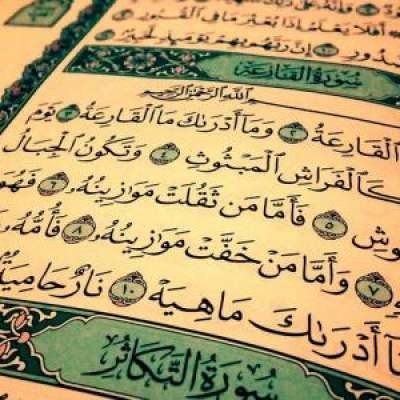 أَفَلَا يَعْلَمُ إِذَا بُعْثِرَ مَا فِي ٱلْقُبُورِ
إِنَّ رَبَّهُم بِهِمْ يَوْمَئِذٍ لَّخَبِيرٌ
سُورَةُ القَارِعَةِ
بِسْمِ ٱللَّهِ ٱلرَّحْمَٰنِ ٱلرَّحِيمِ
ٱلْقَارِعَةُ ٢ وَمَآ أَدْرَىٰكَ مَا ٱلْقَارِعَةُ ٣ يَوْمَ
كَٱلْفَرَاشِ ٱلْمَبْثُوثِ ٤ وَتَكُونُ ٱلْجِبَالُ
٥ فَأَمَّا مَن ثَقُلَتْ مَوَٰزِينُهُۥ ٦ فَهُوَ
٧ وَأَمَّا مَنْ خَفَّتْ مَوَٰزِينُهُۥ ٨ فَأُمُّهُۥ
مَآ أَدْرَىٰكَ مَا هِيَهْ ١٠ نَارٌ حَامِيَةٌ
سُورَةُ التَّكَاثُرِ